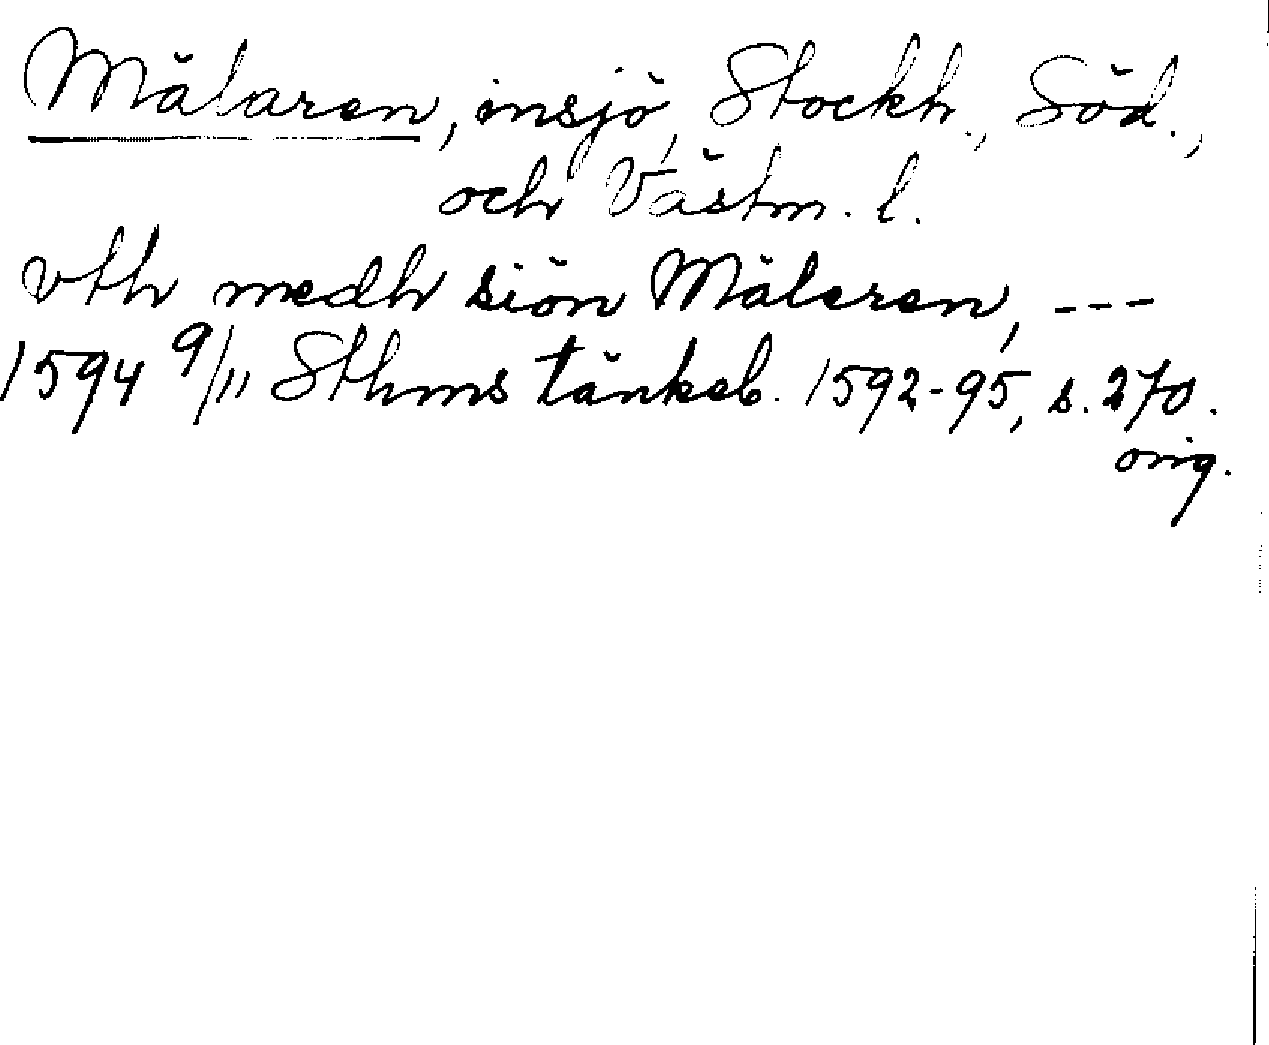 Mälaren, insjö, Stockh., Söd.,
och Västm. l.
vth medh siön Mäleren, ---
1594 9/11 Sthms tänkeb. 1592-95, s. 270.
orig.